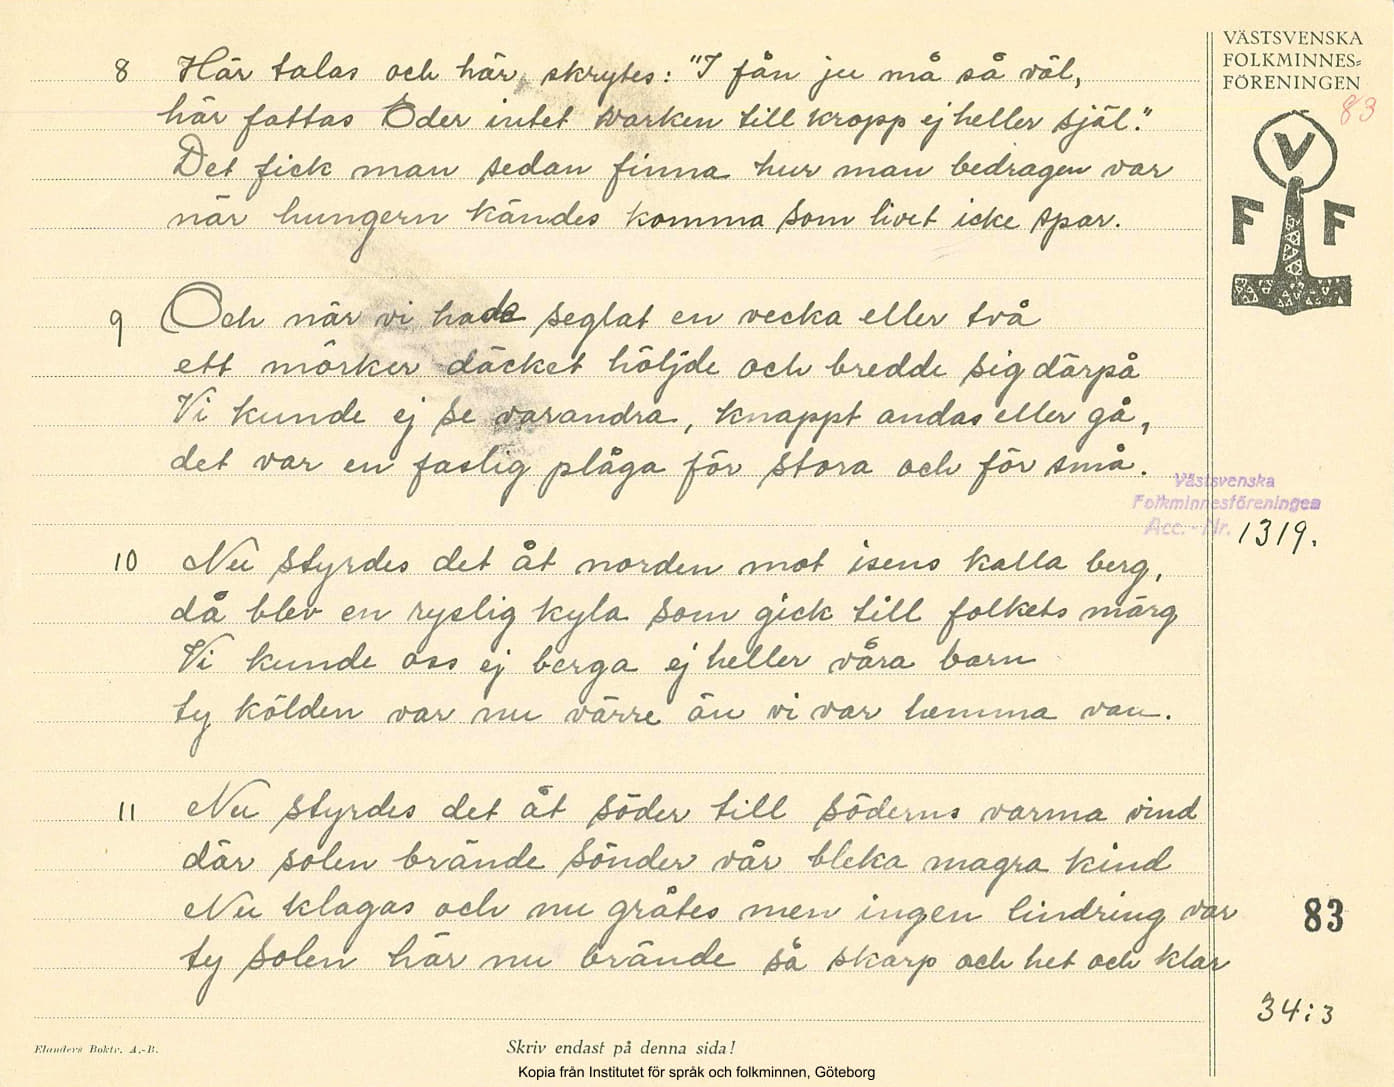 VÄSTSVENSKA
FOLKMINNES=
FÖRENINGEN
83
V
F F
8 Här talas och här skrytes: "I fån ju må så väl,
här fattas Eder intet varken till kropp ej heller själ."
Det fick man sedan finna hur man bedragen var
när hungern kändes komma som livet icke spar.
9 Och när vi hade seglat en vecka eller två
ett mörker däcket höljde och bredde sig därpå
Vi kunde ej se varandra, knappt andas eller gå,
det var en faslig plåga för stora och för små.
Västsvenska
Folkminnesföreningen
Acc. - Nr. 1319.
10 Nu styrdes det åt norden mot isens kalla berg,
då blev en ryslig kyla som gick till folkets märg
Vi kunde oss ej berga ej heller våra barn
ty kölden var nu värre än vi var hemma van.
11 Nu styrdes det åt söder till söderns varma vind
där solen brände sönder vår bleka magra kind
Nu klagas och nu gråtes men ingen lindring var
ty solen här nu brände så skarp och het och klar
83
34:3
Elanders Boktr. A.-B.
Skriv endast på denna sida!
Kopia från Institutet för språk och folkminnen, Göteborg